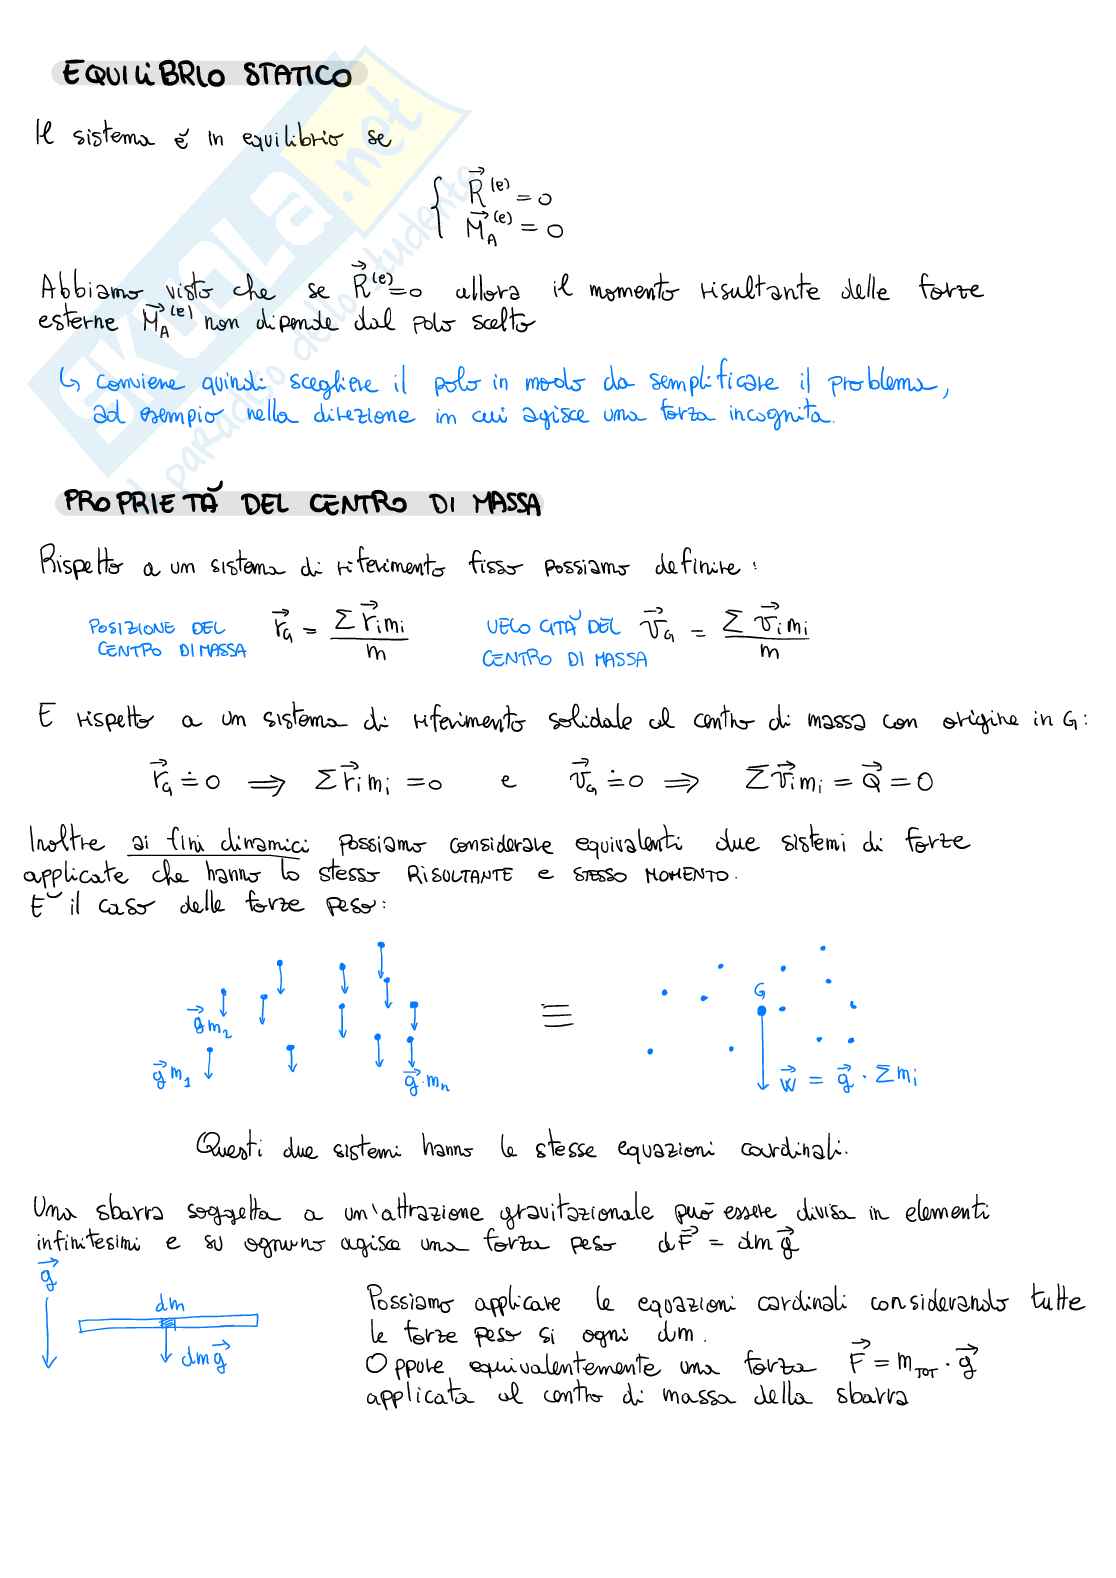 EQUILIBRIO STATICO
Il sistema è in equilibrio se
{ R⃗⁽ᵉ⁾ = 0
M⃗_A⁽ᵉ⁾ = 0
Abbiamo visto che se R⃗⁽ᵉ⁾=0 allora il momento risultante delle forze
esterne M⃗_A⁽ᵉ⁾ non dipende dal polo scelto
↳ Conviene quindi scegliere il polo in modo da semplificare il problema,
ad esempio nella direzione in cui agisce una forza incognita.
PROPRIETÀ DEL CENTRO DI MASSA
Rispetto a un sistema di riferimento fisso possiamo definire:
POSIZIONE DEL CENTRO DI MASSA r⃗_G = Σ r⃗ᵢmᵢ / m
VELOCITÀ DEL CENTRO DI MASSA v⃗_G = Σ v⃗ᵢmᵢ / m
E rispetto a un sistema di riferimento solidale al centro di massa con origine in G:
r⃗_G ≐ 0 ⟹ Σ r⃗ᵢmᵢ = 0 e v⃗_G ≐ 0 ⟹ Σ v⃗ᵢmᵢ = Q⃗ = 0
Inoltre ai fini dinamici possiamo considerare equivalenti due sistemi di forze
applicate che hanno lo stesso RISULTANTE e STESSO MOMENTO.
E' il caso delle forze peso:
g⃗m₂
g⃗m₁
g⃗·mₙ
≡
G
W⃗ = g⃗ · Σmᵢ
Questi due sistemi hanno le stesse equazioni cardinali.
Una sbarra soggetta a un'attrazione gravitazionale può essere divisa in elementi
infinitesimi e su ognuno agisce una forza peso dF⃗ = dm g⃗
g⃗
dm
dm g⃗
Possiamo applicare le equazioni cardinali considerando tutte
le forze peso si ogni dm.
Oppure equivalentemente una forza F⃗ = m_TOT · g⃗
applicata al centro di massa della sbarra
SKUOLA.net
il paradiso dello studente